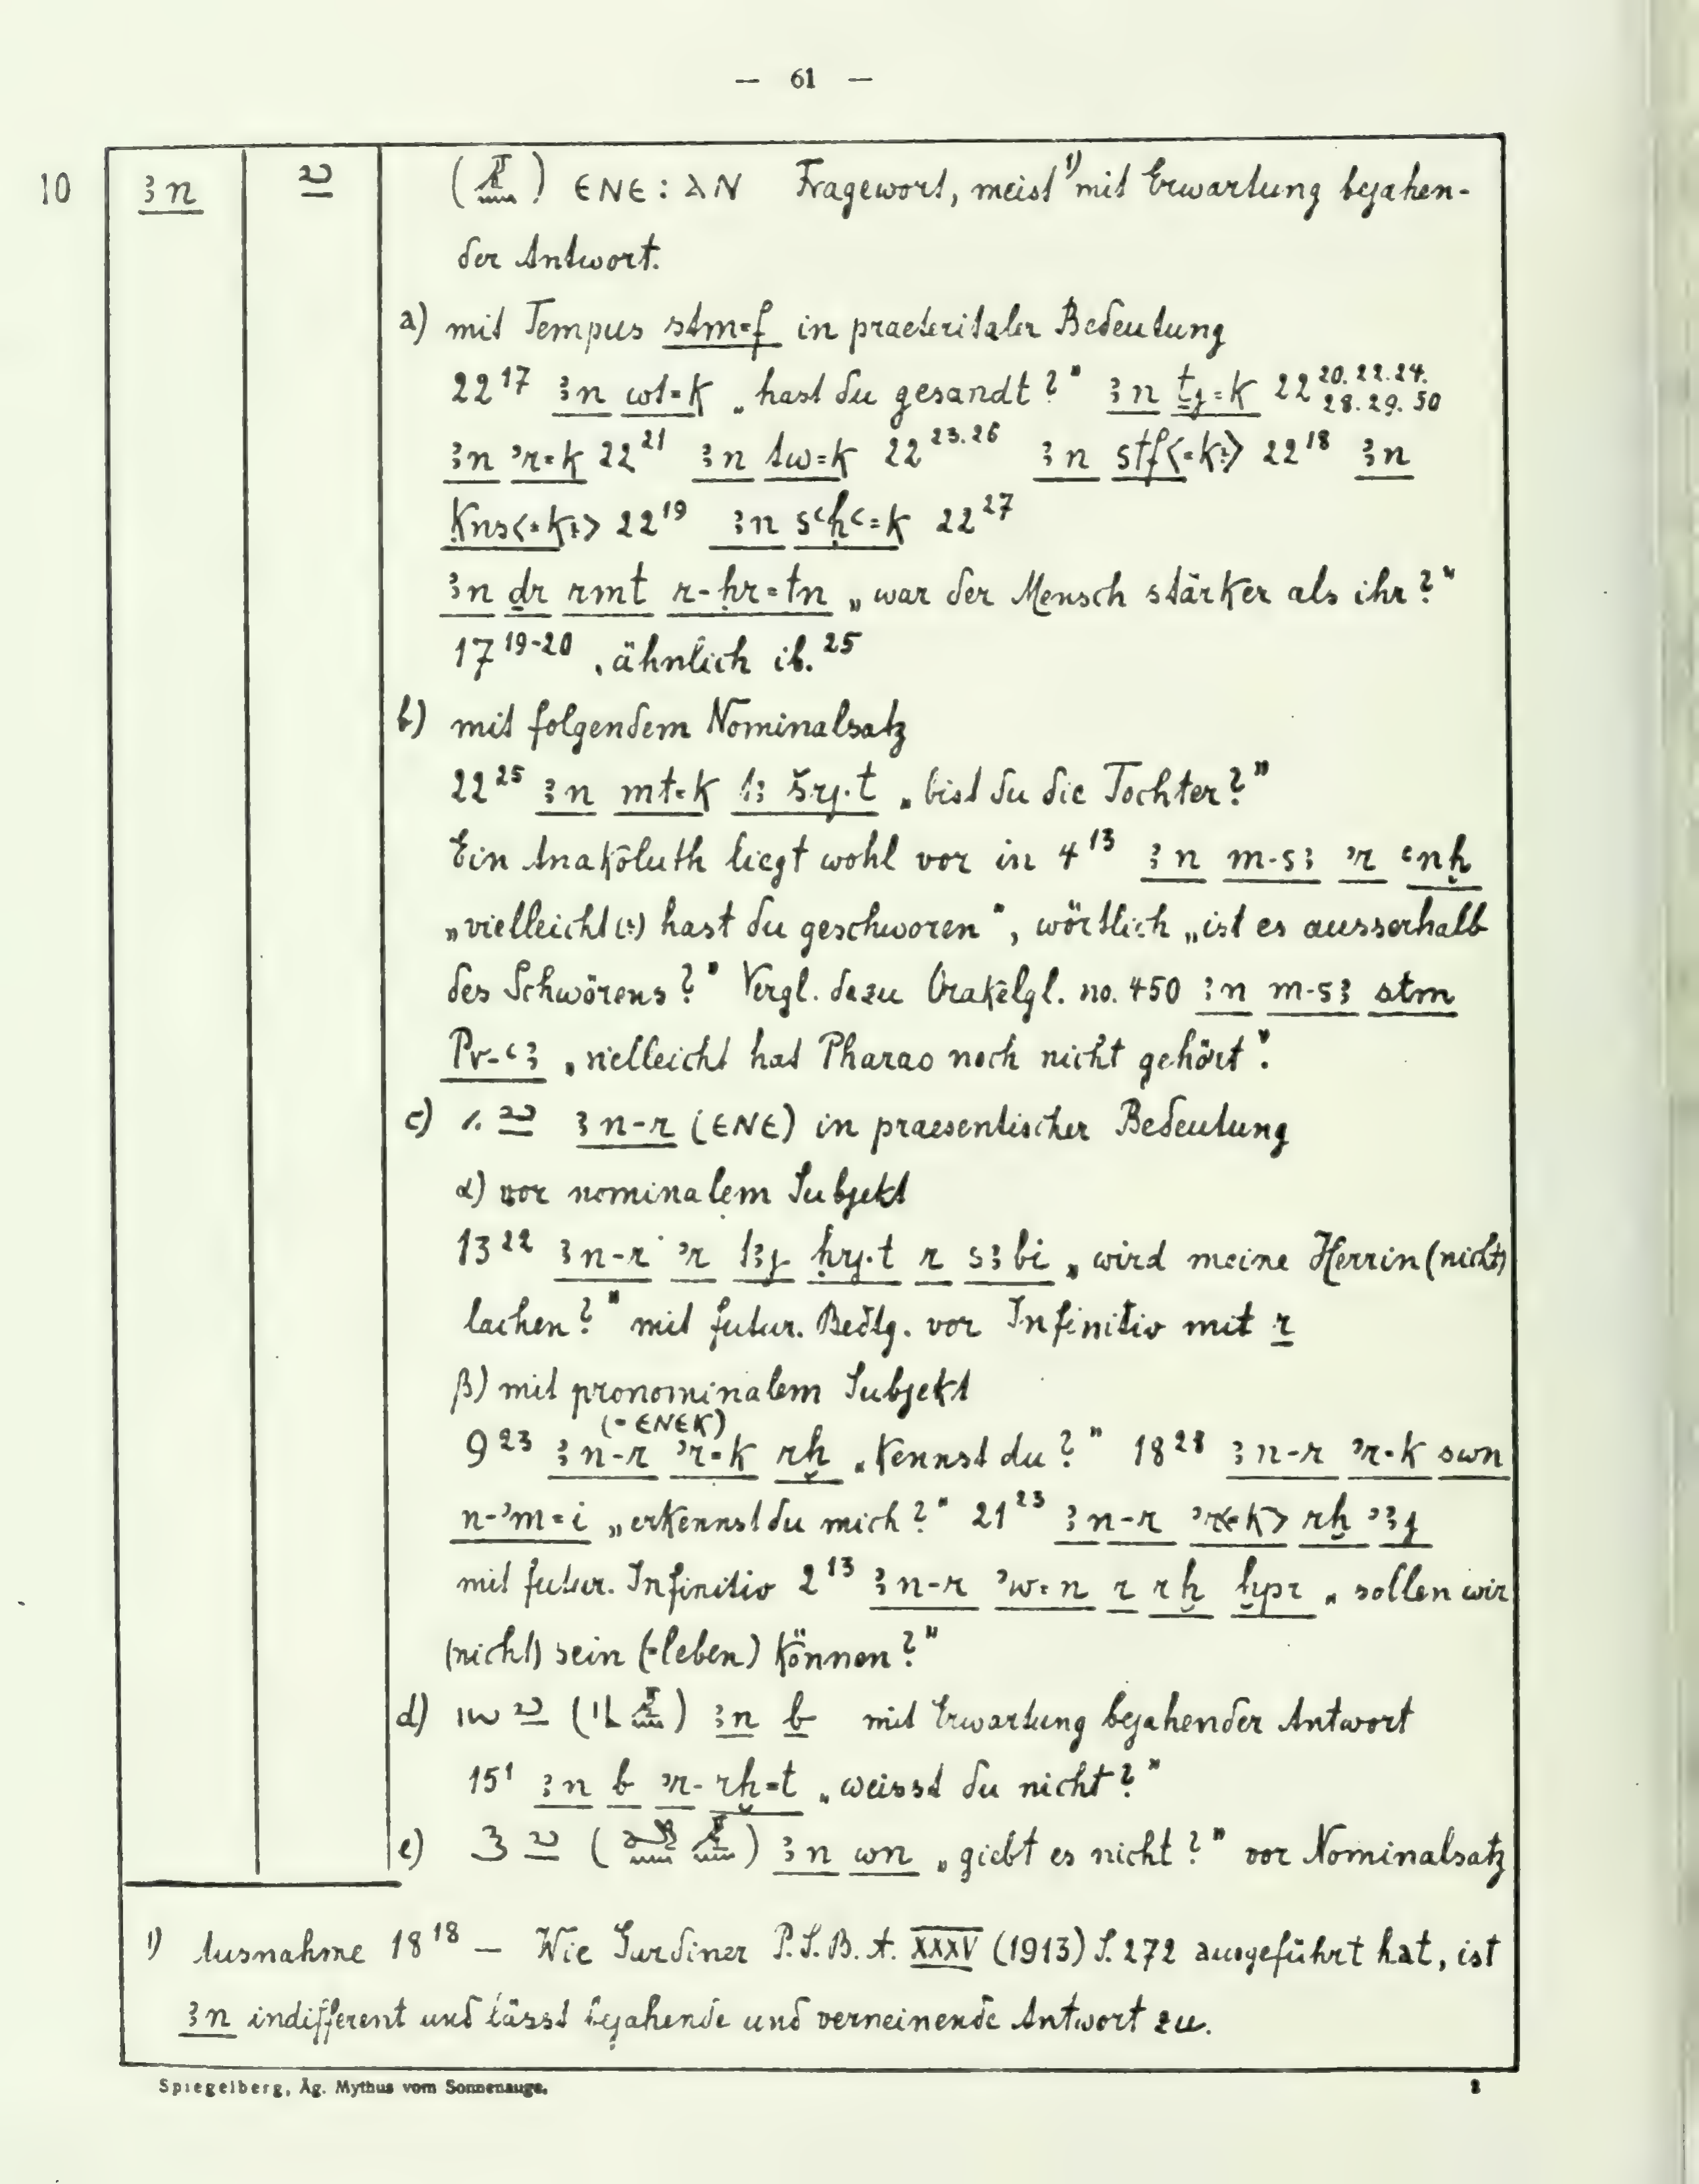 — 61 —
10 ꜣn (𓇋𓈖) ⲉⲛⲉ : ⲁⲛ Fragewort, meist ¹) mit Erwartung bejahen-
der Antwort.
a) mit Tempus stm=f in praeteritaler Bedeutung
22¹⁷ ꜣn wt=k „hast du gesandt?" ꜣn ṯj=k 22 20. 22. 24. 28. 29. 30
ꜣn ʾr=k 22²¹ ꜣn tw=k 22 ²³·²⁶ ꜣn stf<=k> 22¹⁸ ꜣn
Kns<=k> 22¹⁹ ꜣn sʿḥʿ=k 22²⁷
ꜣn dr rmt r-ḥr=tn „war der Mensch stärker als ihr?"
17¹⁹⁻²⁰, ähnlich ib.²⁵
b) mit folgendem Nominalsatz
22²⁵ ꜣn mt=k tꜣ šrj.t „bist du die Tochter?"
Ein Anakoluth liegt wohl vor in 4¹³ ꜣn m-sꜣ ʾr ʿnḫ
„vielleicht(?) hast du geschworen", wörtlich „ist es ausserhalb
des Schwörens?" Vergl. dazu Orakelgl. no. 450 ꜣn m-sꜣ stm
Pr-ʿꜣ „vielleicht hat Pharao noch nicht gehört".
c) ꜣn-r (ⲉⲛⲉ) in praesentischer Bedeutung
α) vor nominalem Subjekt
13²² ꜣn-r ʾr tꜣj ḥrj.t r sꜣbi „wird meine Herrin (nicht)
lachen?" mit futur. Bedtg. vor Infinitiv mit r
β) mit pronominalem Subjekt
(= ⲉⲛⲉⲕ)
9²³ ꜣn-r ʾr=k rḫ „Kennst du?" 18²⁸ ꜣn-r ʾr=k swn
n-ʾm=i „erkennst du mich?" 21²³ ꜣn-r ʾr<=k> rḫ ʾꜣj
mit futur. Infinitiv 2¹³ ꜣn-r ʾw=n r rḫ ḫpr „sollen wir
(nicht) sein (=leben) können?"
d) ꜣn b mit Erwartung bejahender Antwort
15¹ ꜣn b ʾr-rḫ=t „weisst du nicht?"
e) ꜣn wn „giebt es nicht?" vor Nominalsatz
¹) Ausnahme 18¹⁸ — Wie Gardiner P.S.B.A. XXXV (1913) S. 272 ausgeführt hat, ist
ꜣn indifferent und lässt bejahende und verneinende Antwort zu.
Spiegelberg, Äg. Mythus vom Sonnenauge.